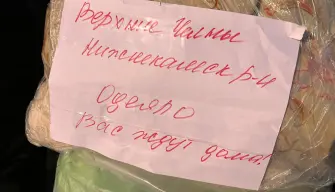 Верхние Челны
Нижнекамск р-н
Одеяло
Вас ждут дома!